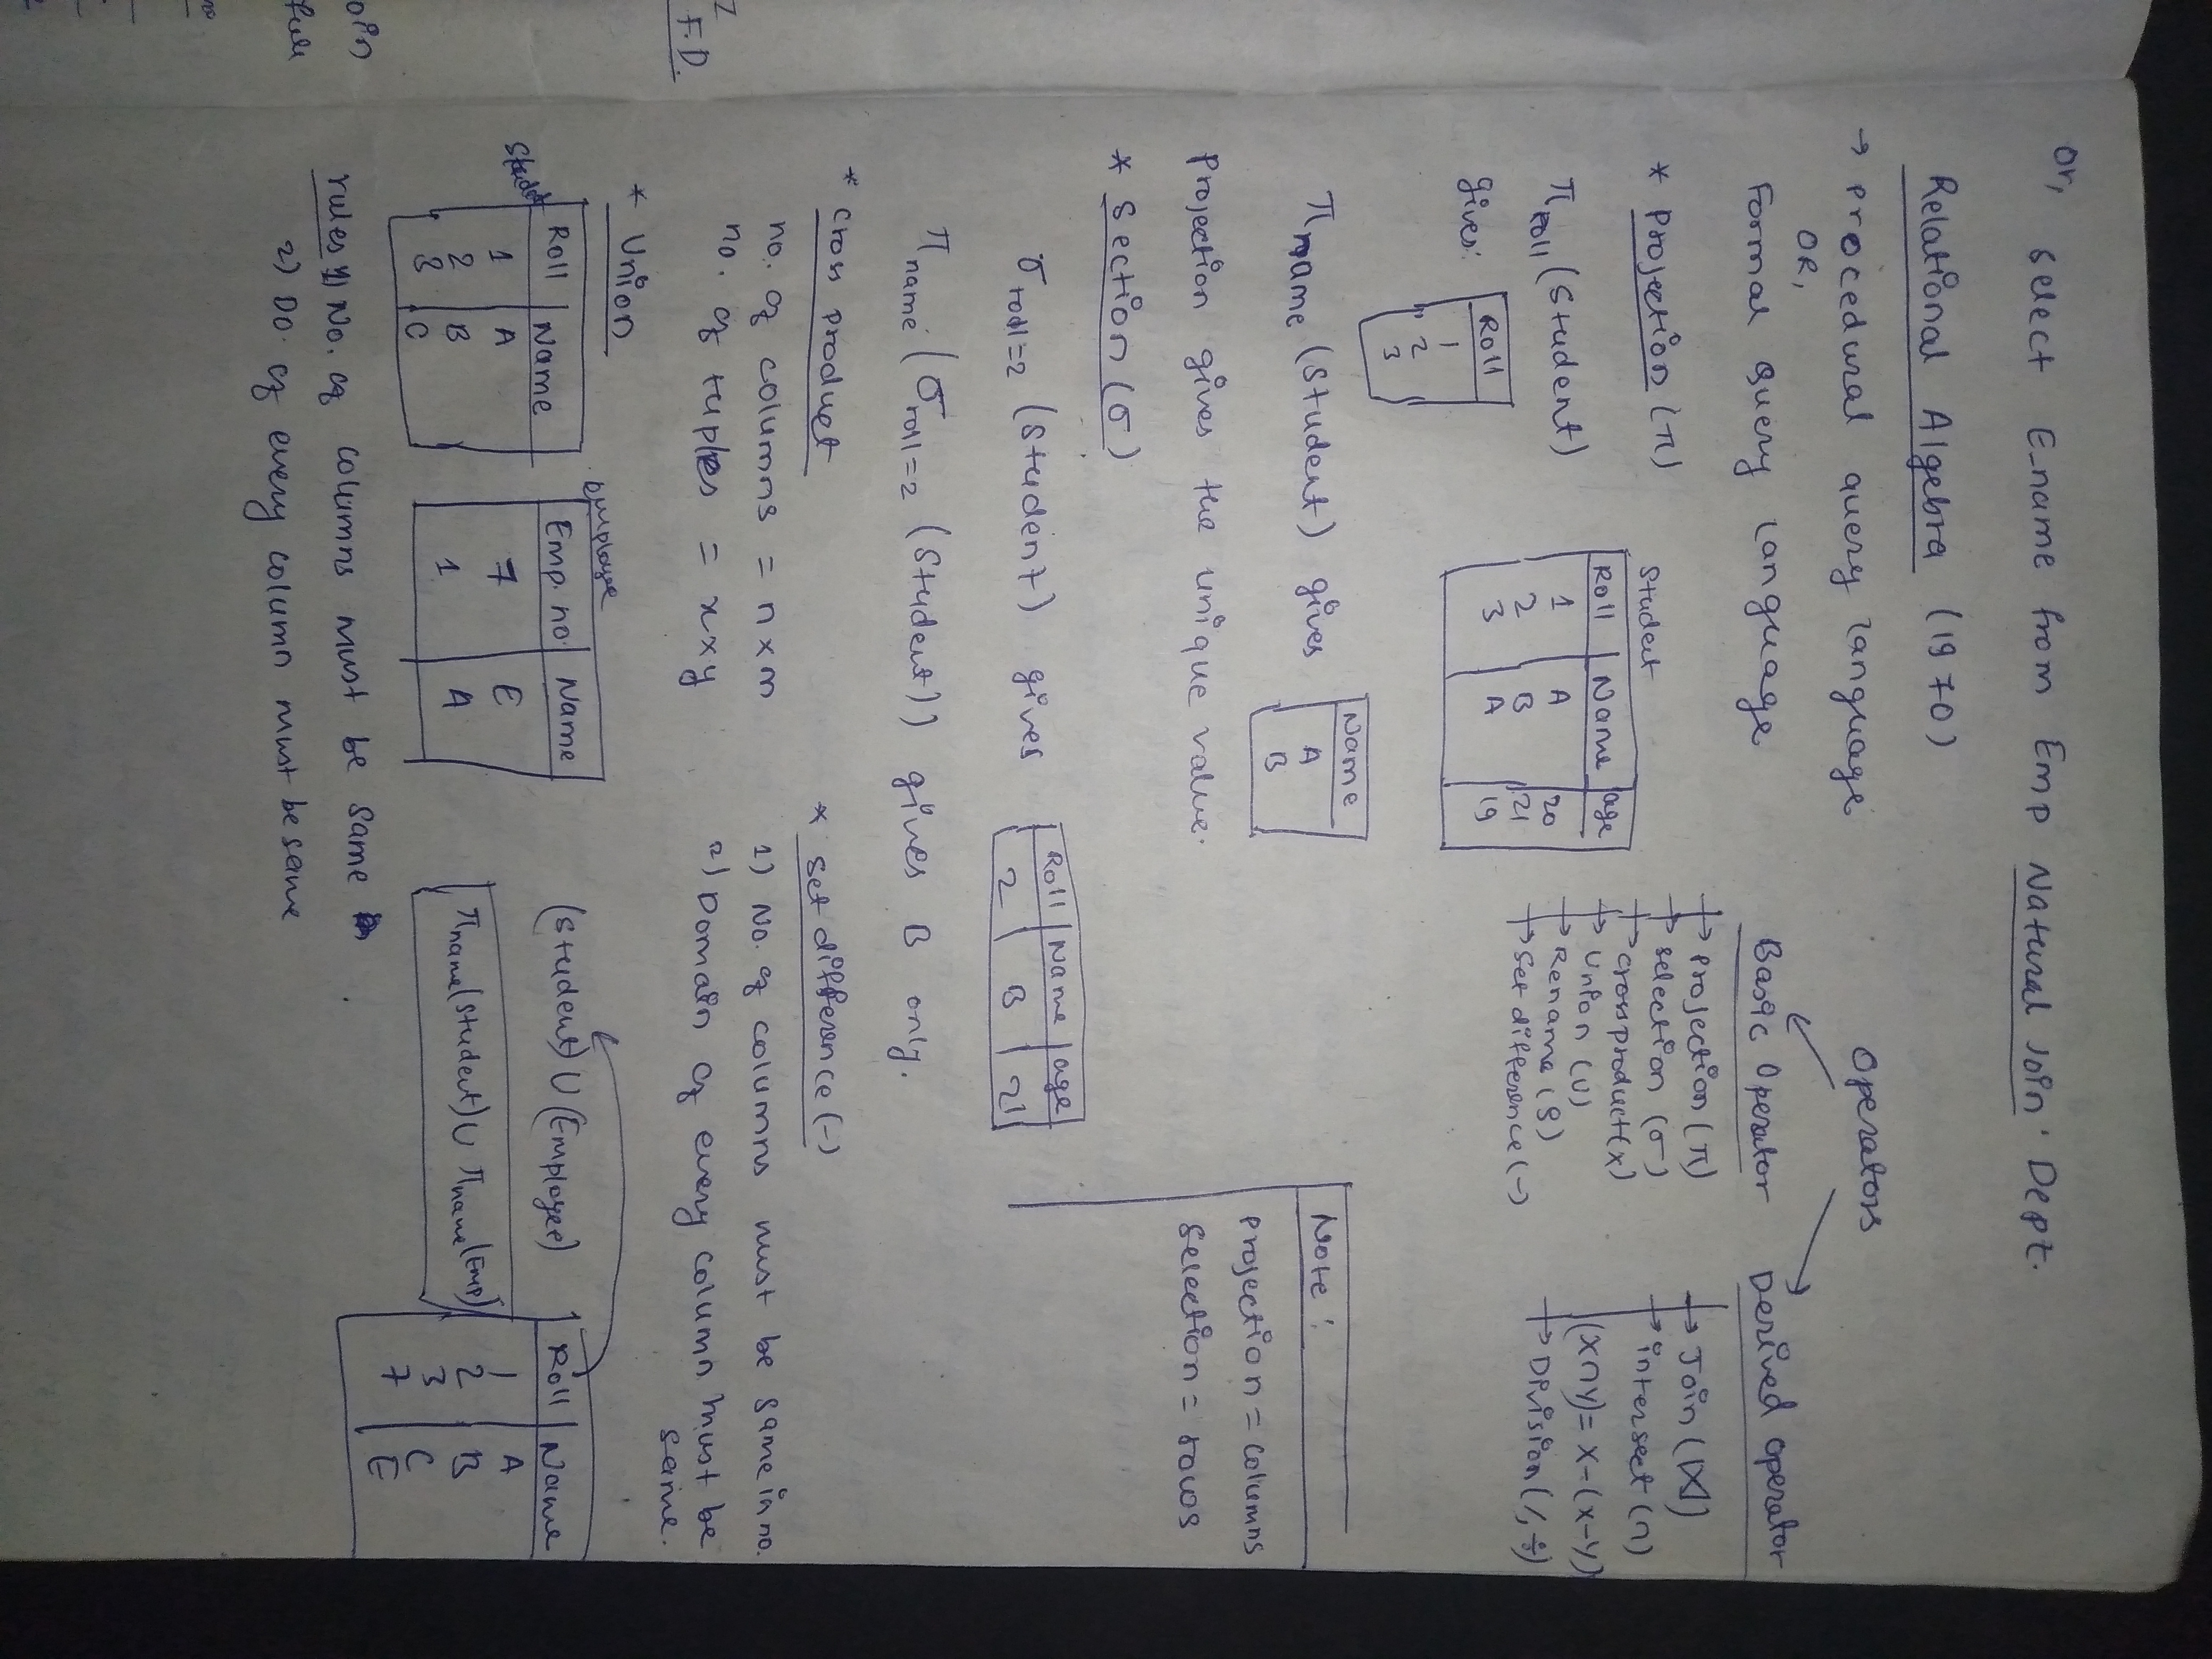 or, select E_name from Emp Natural Join Dept.
Relational Algebra (1970)
→ procedural query language
OR,
Formal query language
Operators
Basic Operator
→ projection (π)
→ selection (σ)
→ cross product (x)
→ union (U)
→ Rename (ρ)
→ Set difference (-)
Derived operator
→ Join (⋈)
→ interset (∩)
(x∩y) = x-(x-y)
→ Division (/, ÷)
* Projection (π)
π roll (student)
gives:
Roll
1
2
3
Student
Roll | Name | age
1 | A | 20
2 | B | 21
3 | A | 19
π name (student) gives
Name
A
B
Projection gives the unique value.
Note:
projection = columns
selection = rows
* Section (σ)
σ roll=2 (student) gives
Roll | Name | age
2 | B | 21
π name (σ roll=2 (student)) gives B only.
* Cross product
no. of columns = n x m
no. of tuples = x x y
* set difference (-)
1) No. of columns must be same in no.
2) Domain of every column must be
same.
* Union
Student
Roll | Name
1 | A
2 | B
3 | C
employee
Emp. no. | Name
7 | E
1 | A
(student) U (Employee)
π name (student) U π name (Emp)
Roll | Name
1 | A
2 | B
3 | C
7 | E
rules 1) No. of columns must be same
2) Do. of every column must be same
F.D.
oin